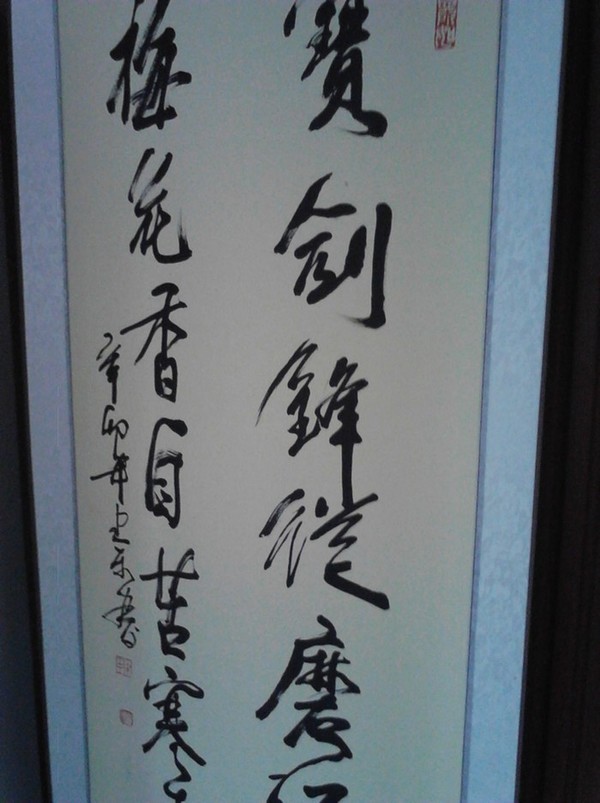 寶劍鋒從磨
梅花香自苦寒
辛卯年